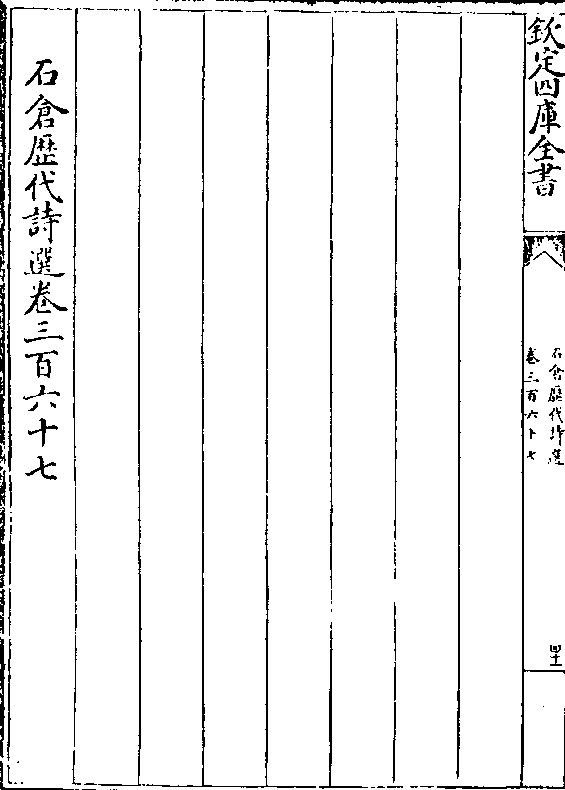 欽定四庫全書
石倉歴代詩選
卷三百六十七
四十
石倉歴代詩選卷三百六十七